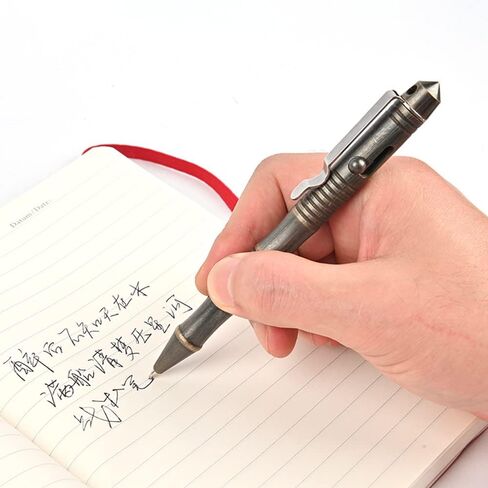 Datum / Date
醉后不知天在水
满船清梦压星河